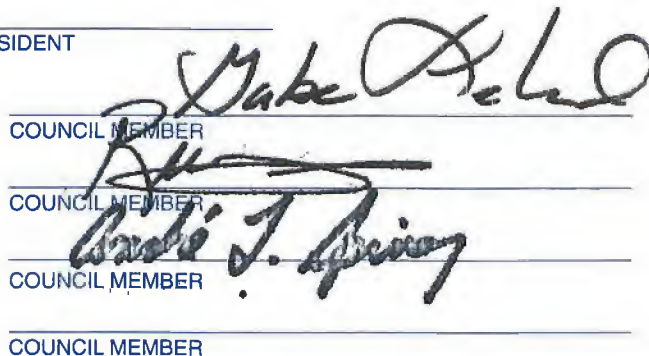 SIDENT
Gabe
COUNCIL MEMBER
COUNCIL MEMBER
André L. Spivey
COUNCIL MEMBER
COUNCIL MEMBER